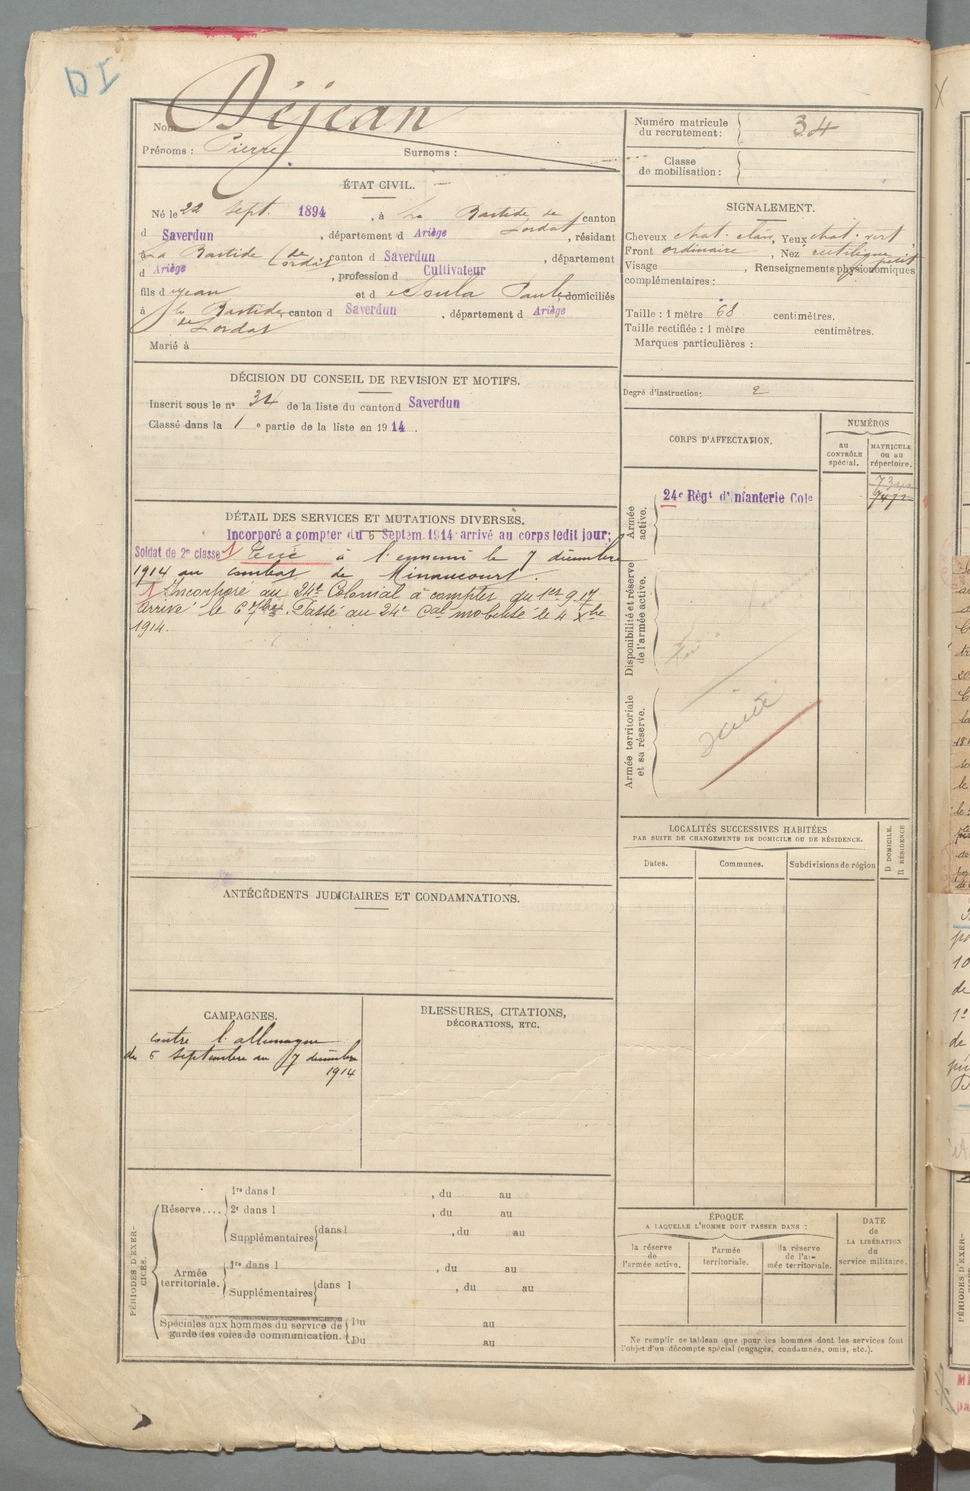 DI
Nom Déjean
Prénoms : Pierre Surnoms :
Numéro matricule du recrutement: 34
Classe de mobilisation:
ÉTAT CIVIL.
Né le 22 Sept. 1894, à La Bastide de Lordat canton
d Saverdun, département d Ariège, résidant
La Bastide de Lordat, canton d Saverdun, département
d Ariège, profession d Cultivateur
fils d Jean et d Paule domiciliés
à La Bastide de Lordat canton d Saverdun, département d Ariège
Marié à
SIGNALEMENT.
Cheveux chat. clair, Yeux chat. vert
Front ordinaire, Nez rectiligne
Visage , Renseignements physionomiques petit
complémentaires :
Taille : 1 mètre 68 centimètres.
Taille rectifiée : 1 mètre centimètres.
Marques particulières :
DÉCISION DU CONSEIL DE REVISION ET MOTIFS.
Inscrit sous le n° 34 de la liste du canton d Saverdun
Classé dans la 1 e partie de la liste en 1914.
Degré d'instruction: 2
CORPS D'AFFECTATION.
NUMÉROS
au CONTRÔLE spécial.
MATRICULE ou au répertoire.
Armée active.
24e Régt d'Infanterie Cole
Disponibilité et réserve de l'armée active.
Armée territoriale et sa réserve.
DÉTAIL DES SERVICES ET MUTATIONS DIVERSES.
Incorporé à compter du 6 Septem. 1914 arrivé au corps ledit jour;
Soldat de 2e classe 1 Tué à l'ennemi le 7 décembre
1914 au combat de Minaucourt.
1 Incorporé au 24e Colonial à compter du 1er 9. 17
arrivé le 6 7bre. Passé au 24e Cal mobilisé le 4 Xbre
1914.
LOCALITÉS SUCCESSIVES HABITÉES
PAR SUITE DE CHANGEMENTS DE DOMICILE OU DE RÉSIDENCE.
Dates. Communes. Subdivisions de région
D DOMICILE. R RÉSIDENCE
ANTÉCÉDENTS JUDICIAIRES ET CONDAMNATIONS.
CAMPAGNES.
contre l'allemagne
du 6 septembre au 7 décembre
1914
BLESSURES, CITATIONS,
DÉCORATIONS, ETC.
PÉRIODES D'EXERCICES.
Réserve....
1re dans l , du au
2e dans l , du au
Supplémentaires dans l , du au
Armée territoriale.
1re dans l , du au
Supplémentaires dans l , du au
Spéciales aux hommes du service de garde des voies de communication.
Du au
Du au
ÉPOQUE
A LAQUELLE L'HOMME DOIT PASSER DANS :
la réserve de l'armée active.
l'armée territoriale.
la réserve de l'armée territoriale.
DATE de LA LIBÉRATION du service militaire.
Ne remplir ce tableau que pour les hommes dont les services font
l'objet d'un décompte spécial (engagés, condamnés, omis, etc.).